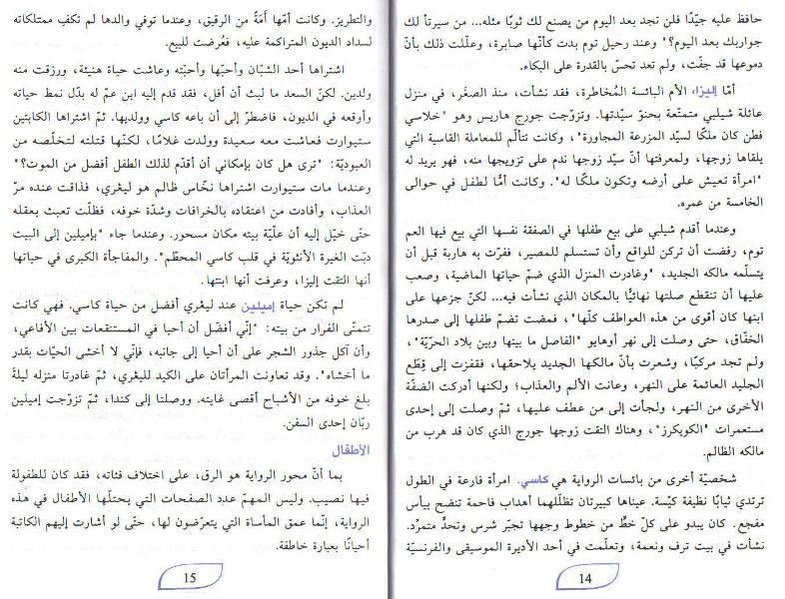 حافظ عليه جيّدًا فلن تجد بعد اليوم من يصنع لك ثوبًا مثله... من سيرتأ لك
جواربك بعد اليوم؟" وعند رحيل توم بدت كأنّها صابرة، وعلّلت ذلك بأنّ
دموعها قد جفّت، ولم تعد تحسّ بالقدرة على البكاء.
أمّا إليزا، الأم البائسة المُخاطرة، فقد نشأت، منذ الصغَر، في منزل
عائلة شيلبي متمتّعة بحنوّ سيّدتها. وتزوّجت جورج هاريس وهو "خلاسي
فطن كان ملكًا لسيّد المزرعة المجاورة"، وكانت تتألّم للمعاملة القاسية التي
يلقاها زوجها، ولمعرفتها أنّ سيّد زوجها ندم على تزويجها منه، فهو يريد له
"امرأة تعيش على أرضه وتكون ملكًا له". وكانت أمًّا لطفل في حوالى
الخامسة من عمره.
وعندما أقدم شيلبي على بيع طفلها في الصفقة نفسها التي بيع فيها العم
توم، رفضت أن تركن للواقع وأن تستسلم للمصير، ففرّت به هاربة قبل أن
يتسلّمه مالكه الجديد، "وغادرت المنزل الذي ضمّ حياتها الماضية، وصعب
عليها أن تنقطع صلتها نهائيًّا بالمكان الذي نشأت فيه... لكنّ جزعها على
ابنها كان أقوى من هذه العواطف كلّها"، فمضت تضمّ طفلها إلى صدرها
الخفّاق، حتى وصلت إلى نهر أوهايو "الفاصل ما بينها وبين بلاد الحرّيّة"،
ولم تجد مركبًا، وشعرت بأنّ مالكها الجديد يلاحقها، فقفزت إلى قِطَع
الجليد العائمة على النهر، وعانت الألم والعذاب؛ ولكنها أدركت الضفّة
الأخرى من النهر، ولجأت إلى من عطف عليها، ثمّ وصلت إلى إحدى
مستعمرات "الكويكرز"، وهناك التقت زوجها جورج الذي كان قد هرب من
مالكه الظالم.
شخصيّة أخرى من بائسات الرواية هي كاسي. امرأة فارعة في الطول
ترتدي ثيابًا نظيفة كيّسة. عيناها كبيرتان تظلّلهما أهداب فاحمة تنضح بيأس
مفجع. كان يبدو على كلّ خطّ من خطوط وجهها تجبّر شرس وتحدٍّ متمرّد.
نشأت في بيت ترف ونعمة، وتعلّمت في أحد الأديرة الموسيقى والفرنسيّة
14
والتطريز. وكانت أمّها أَمَةً من الرقيق، وعندما توفي والدها لم تكفِ ممتلكاته
لسداد الديون المتراكمة عليه، فعُرضت للبيع.
اشتراها أحد الشبّان وأحبّها وأحبّته وعاشت حياة هنيئة، ورزقت منه
ولدين. لكنّ السعد ما لبث أن أفل، فقد قدم إليه ابن عمّ له بدّل نمط حياته
وأوقعه في الديون، فاضطرّ إلى أن باعه كاسي وولديها. ثمّ اشتراها الكابتين
ستيوارت فعاشت معه سعيدة وولدت غلامًا، لكنّها قتلته لتخلّصه من
العبوديّة: "ترى هل كان بإمكاني أن أقدّم لذلك الطفل أفضل من الموت؟"
وعندما مات ستيوارت اشتراها نخّاس ظالم هو ليغري، فذاقت عنده مرّ
العذاب، وأفادت من اعتقاده بالخرافات وشدّة خوفه، فظلّت تعبث بعقله
حتّى خيّل إليه أن علّيّة بيته مكان مسحور. وعندما جاء "بإميلين إلى البيت
دبّت الغيرة الأنثويّة في قلب كاسي المحطّم". والمفاجأة الكبرى في حياتها
أنها التقت إليزا، وعرفت أنها ابنتها.
لم تكن حياة إميلين عند ليغري أفضل من حياة كاسي. فهي كانت
تتمنّى الفرار من بيته: "إنّي أفضّل أن أحيا في المستنقعات بين الأفاعي،
وأن آكل جذور الشجر على أن أحيا إلى جانبه، فإنّي لا أخشى الحيّات بقدر
ما أخشاه". وقد تعاونت المرأتان على الكيد لليغري، ثمّ غادرتا منزله ليلةَ
بلغ خوفه من الأشباح أقصى غايته. ووصلتا إلى كندا، ثمّ تزوّجت إميلين
ربّان إحدى السفن.
الأطفال
بما أنّ محور الرواية هو الرق، على اختلاف فئاته، فقد كان للطفولة
فيها نصيب. وليس المهمّ عدد الصفحات التي يحتلّها الأطفال في هذه
الرواية، إنّما عمق المأساة التي يتعرّضون لها، حتّى لو أشارت إليهم الكاتبة
أحيانًا بعبارة خاطفة.
15